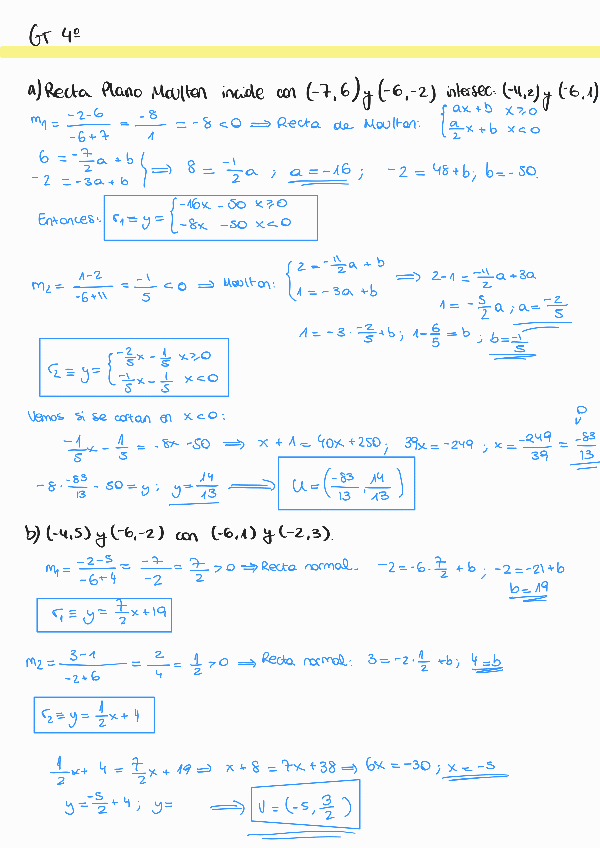 GT 4º
a) Recta Plano Moulton incide con (-7,6) y (-6,-2) intersec. (-4,2) y (-6,1)
m₁ = (-2-6)/(-6+7) = -8/1 = -8 < 0 ⇒ Recta de Moulton: { ax+b x≥0
a/2 x + b x<0
6 = -7/2 a + b
-2 = -3a + b } ⇒ 8 = -1/2 a ; a = -16 ; -2 = 48+b, b = -50.
Entonces: r₁ ≡ y = { -16x - 50 x≥0
-8x - 50 x<0
m₂ = (1-2)/(-6+11) = -1/5 < 0 ⇒ Moulton: { 2 = -11/2 a + b
1 = -3a + b ⇒ 2-1 = -11/2 a + 3a
1 = -5/2 a ; a = -2/5
1 = -3 · -2/5 + b ; 1 - 6/5 = b ; b = -1/5
r₂ ≡ y = { -2/5 x - 1/5 x≥0
-1/5 x - 1/5 x<0
Vemos si se cortan en x<0:
-1/5 x - 1/5 = -8x - 50 ⇒ x + 1 = 40x + 250 ; 39x = -249 ; x = -249/39 = -83/13
-8 · -83/13 - 50 = y ; y = 14/13 ⇒ U = (-83/13, 14/13)
b) (-4,5) y (-6,-2) con (-6,1) y (-2,3).
m₁ = (-2-5)/(-6+4) = -7/-2 = 7/2 > 0 ⇒ Recta normal. -2 = -6 · 7/2 + b ; -2 = -21 + b
b = 19
r₁ ≡ y = 7/2 x + 19
m₂ = (3-1)/(-2+6) = 2/4 = 1/2 > 0 ⇒ Recta normal: 3 = -2 · 1/2 + b ; 4 = b
r₂ ≡ y = 1/2 x + 4
1/2 x + 4 = 7/2 x + 19 ⇒ x + 8 = 7x + 38 ⇒ 6x = -30 ; x = -5
y = -5/2 + 4 ; y = ⇒ V = (-5, 3/2)